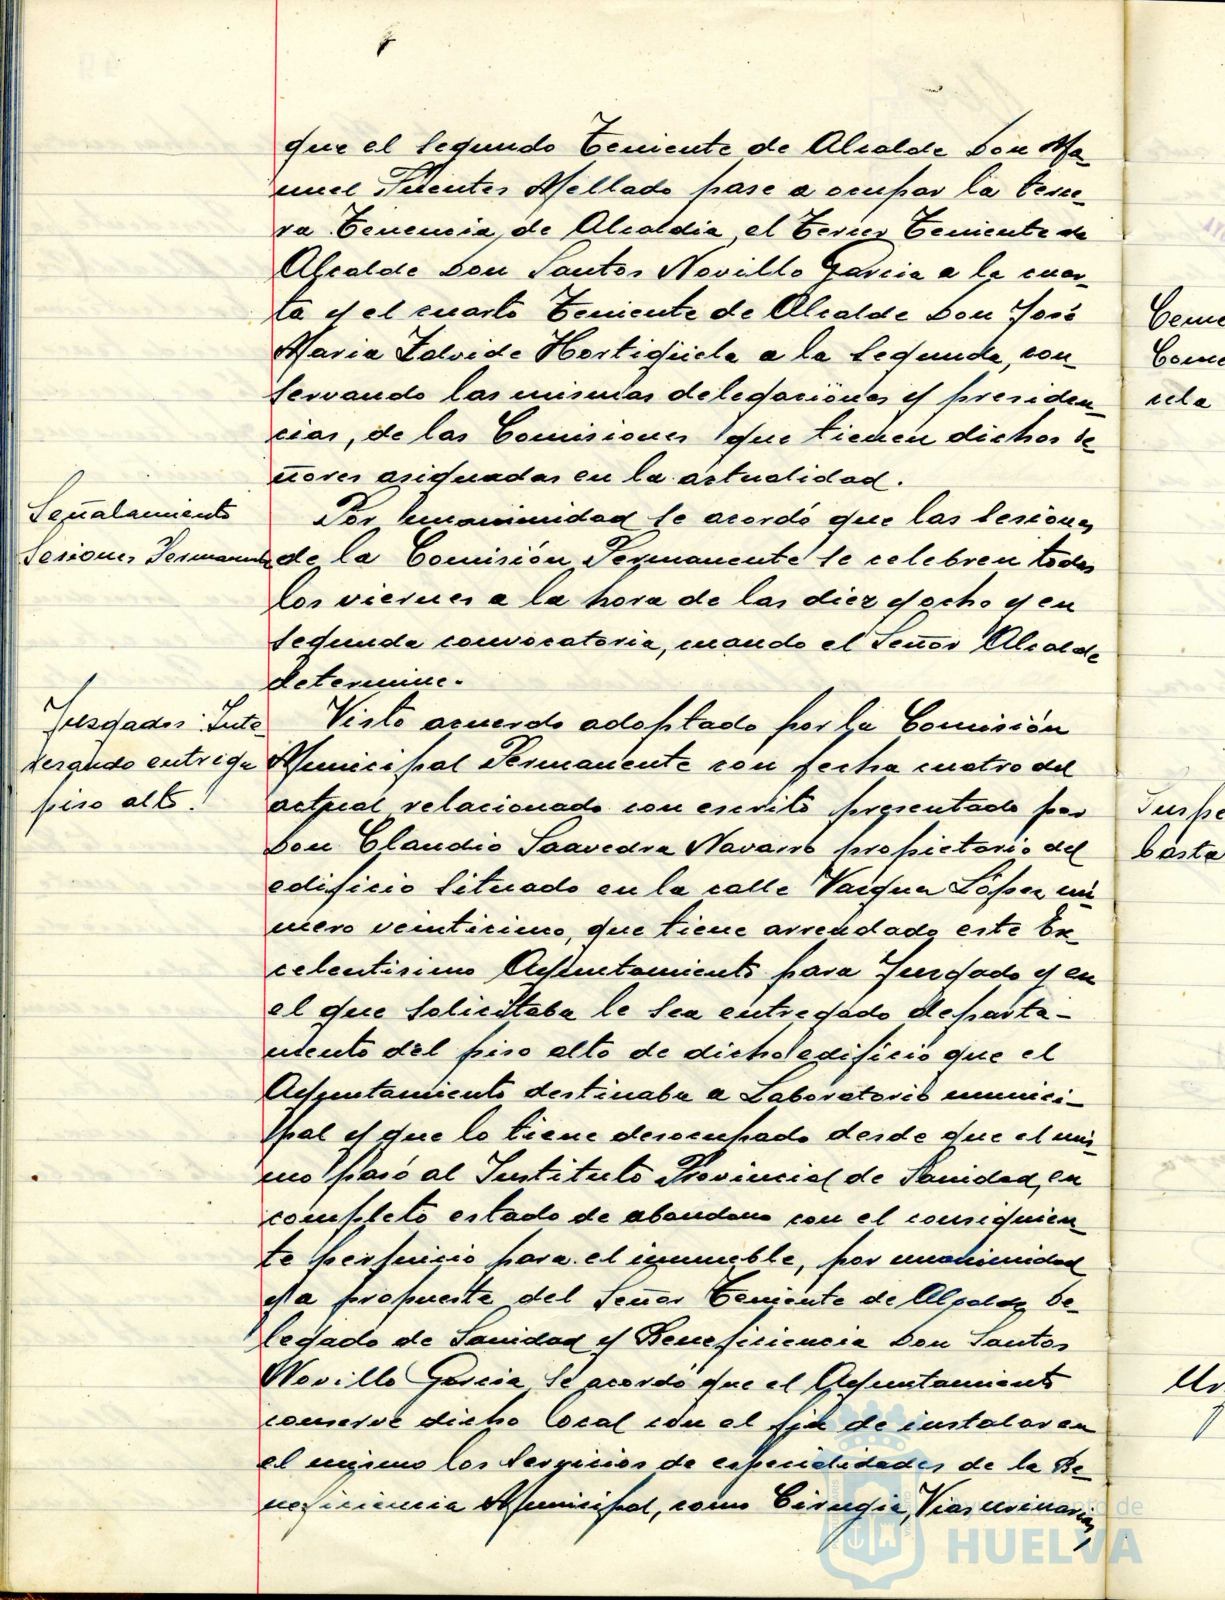 que el segundo Teniente de Alcalde Don Ma-
nuel Fuentes Mellado pase a ocupar la terce-
ra Tenencia de Alcaldia, el Tercer Teniente de
Alcalde Don Santos Novillo Garcia a la cuar-
ta y el cuarto Teniente de Alcalde Don José
Maria Zalvide Hortigüela a la segunda, con-
servando las mismas delegaciones y presiden-
cias, de las Comisiones que tienen dichos se
ñores asignadas en la actualidad.
Señalamiento
Sesiones Permanente
Por unanimidad se acordó que las sesiones
de la Comisión Permanente se celebren todos
los viernes a la hora de las diez y ocho y en
segunda convocatoria, cuando el Señor Alcalde
determine.
Juzgados: Inte-
resando entrega
piso alto.
Visto acuerdo adoptado por la Comisión
Municipal Permanente con fecha cuatro del
actual relacionado con escrito presentado por
Don Claudio Saavedra Navarro propietario del
edificio situado en la calle Vazquez López nú-
mero veinticinco, que tiene arrendado este Ex-
celentisimo Ayuntamiento para Juzgado y en
el que solicitaba le sea entregado departa-
mento del piso alto de dicho edificio que el
Ayuntamiento destinaba a Laboratorio munici-
pal y que lo tiene desocupado desde que el mis-
mo pasó al Instituto Provincial de Sanidad, en
completo estado de abandono con el consiguien-
te perjuicio para el inmueble, por unanimidad
y a propuesta del Señor Teniente de Alcalde De-
legado de Sanidad y Beneficiencia Don Santos
Novillo Garcia se acordó que el Ayuntamiento
conserve dicho local con el fin de instalar en
el mismo los servicios de especialidades de la Be-
neficiencia Municipal, como Cirugia, Vias urinarias,
Ceme
Come
cela
basta
Ayuntamiento de
HUELVA